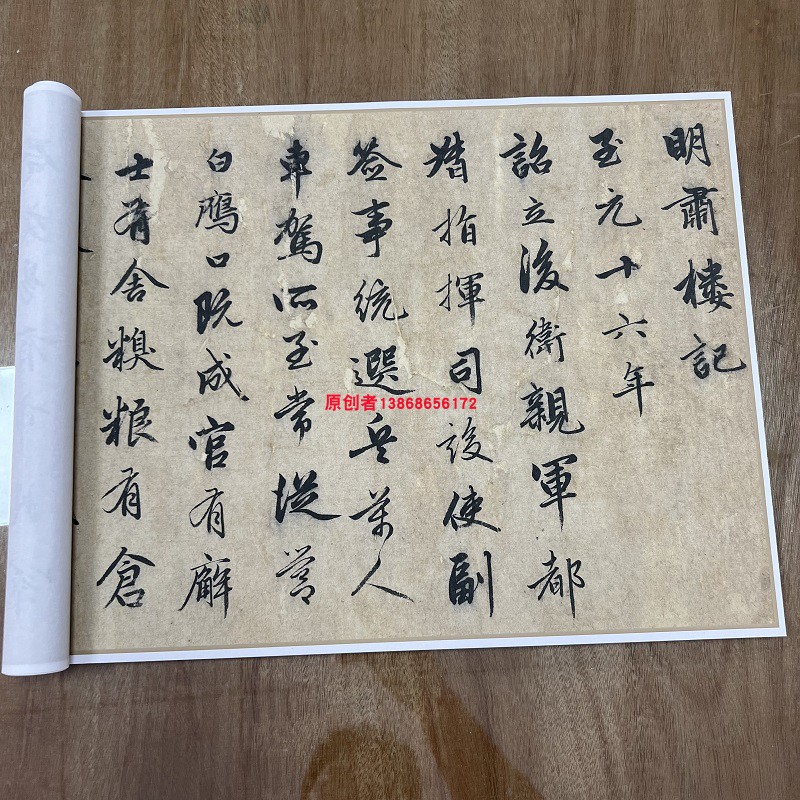 明肅樓記
至元十六年
詔立後衛親軍都
指揮司設使副
签事統選兵萬人
車駕所至常從營
白鷹口既成官有廨
士有舍糗粮有倉
原创者13868656172